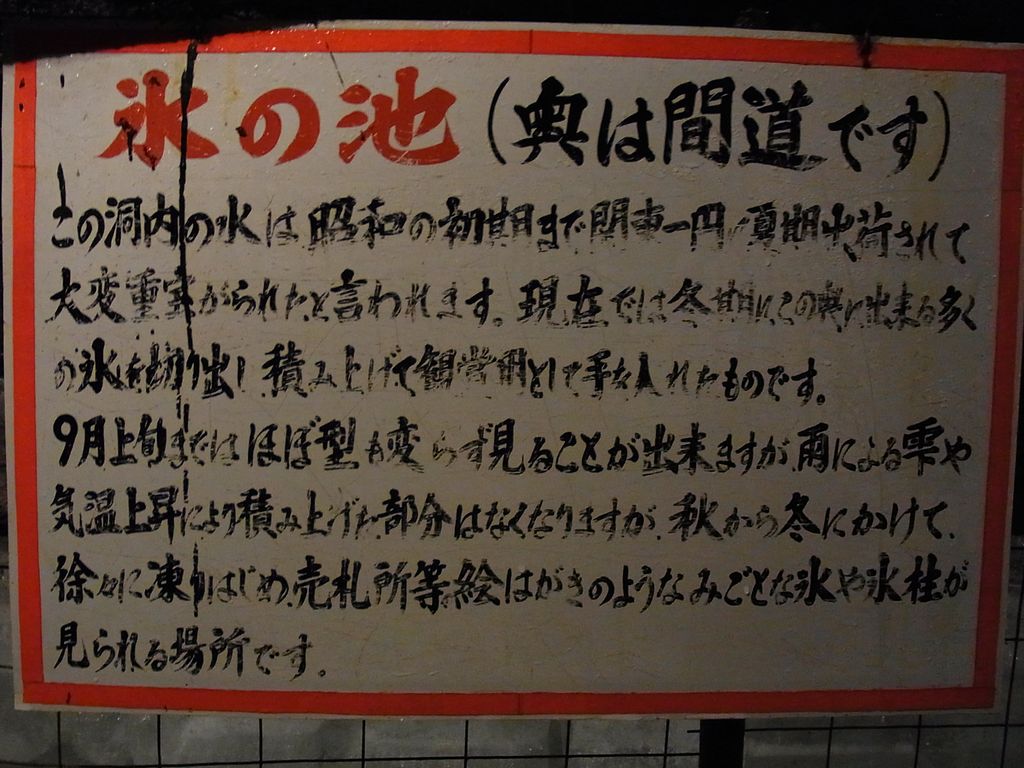 氷の池（奥は間道です）
この洞内の氷は昭和の初期まで関東一円夏期出荷されて
大変重宝がられたと言われます。現在では冬期にこの奥に出来る多く
の氷を切り出し積み上げて観賞用として手を入れたものです。
9月上旬まではほぼ型も変らず見ることが出来ますが雨による雫や
気温上昇により積み上げた部分はなくなりますが、秋から冬にかけて、
徐々に凍りはじめ、売札所等絵はがきのようなみごとな氷や氷柱が
見られる場所です。